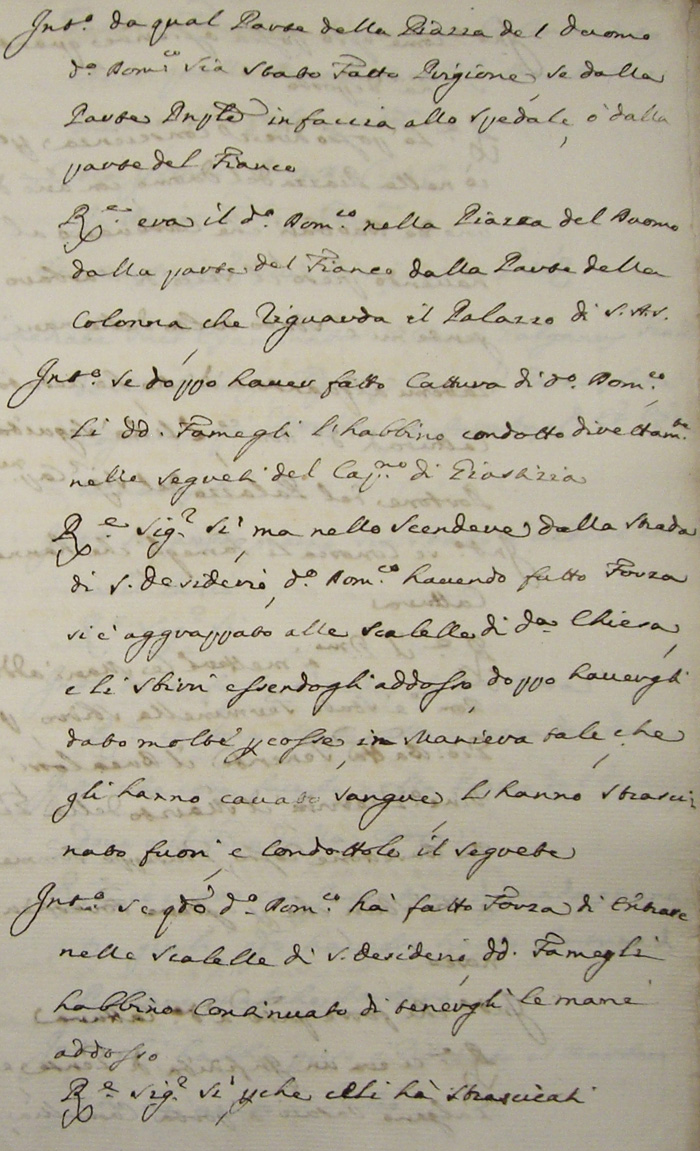 Int.º da qual Parte della Piazza del duomo
d.º Dom.co sia stato Fatto Prigione, se dalla
Parte in faccia allo spedale, ò dalla
parte del Fianco
R.e era il d.º Dom.co nella Piazza del Duomo
dalla parte del Fianco dalla Parte della
Colonna che riguarda il Palazzo di S.A.S.
Int.º se doppo haver fatto Cattura di d.º Dom.co,
li dd. Famegli l'habbino condotto direttam.te
nelle segreti del Cap.no di Giustizia
R.e sig.r sì, ma nello scendere dalla strada
di S. Desiderio, d.º Dom.co havendo fatto Forza
si è aggrappato alle scalelle di d.a Chiesa,
e li sbirri essendogli addosso, doppo havergli
dato molte pcosse, in Maniera tale, che
gli hanno cavato sangue, l'hanno strasci-
nato fuori, e Condottolo il segrete
Int.º se qdo d.º Dom.co hà fatto Forza di Entrare
nelle scalelle di S. Desiderio, dd. Famegli
habbino Continuato di tenergli le mani
addosso
R.e sig.r sì, pche elli hà strascicati